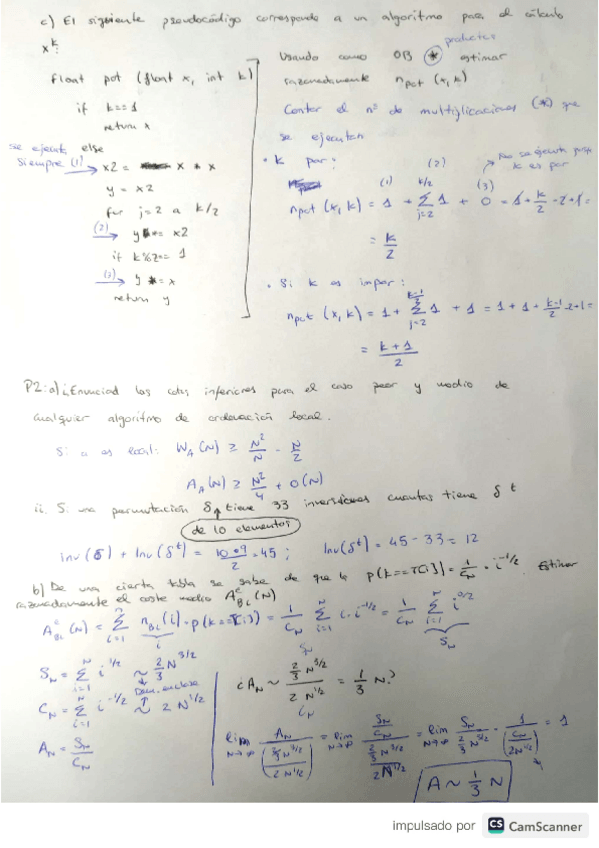 c) El siguiente pseudocódigo corresponde a un algoritmo para el cálculo
x^k:
float pot (float x, int k)
if k==1
return x
else
se ejecuta
siempre (1) → x2 = x * x
y = x2
for j=2 a k/2
(2) → y *= x2
if k%2== 1
(3) → y *= x
return y
productos
Usando como OB * estimar
razonadamente n_pot (x,k)
Contar el nº de multiplicaciones (*) que
se ejecutan
· k par:
No se ejecuta porque
k es par
(1) (2) (3)
n_pot (x,k) = 1 + Σ_{j=2}^{k/2} 1 + 0 = 1 + k/2 - 2 + 1 =
= k/2
· Si k es impar:
n_pot (x,k) = 1 + Σ_{j=2}^{k-1/2} 1 + 1 = 1 + 1 + k-1/2 - 2 + 1 =
= k+1/2
P2: a) i. Enunciad las cotas inferiores para el caso peor y medio de
cualquier algoritmo de ordenación local.
Si a es local: W_A (N) ≥ N²/N - N/2
A_A (N) ≥ N²/4 + O(N)
ii. Si una permutación δ tiene 33 inversiones cuantas tiene δ^t
de 10 elementos
inv (δ) + Inv (δ^t) = 10·9/2 = 45 ; Inv (δ^t) = 45 - 33 = 12
b) De una cierta tabla se sabe de que la p(k==T[i]) = 1/C_N · i^{-1/2}. Estimar
razonadamente el coste medio A^e_{BL} (N)
A^e_{BL} (N) = Σ_{i=1}^{N} n_{BL} (i) · p(k==T[i]) = 1/C_N Σ_{i=1}^{N} i · i^{-1/2} = 1/C_N Σ_{i=1}^{N} i^{1/2}
i
S_N
S_N = Σ_{i=1}^{N} i^{1/2} ~ 2/3 N^{3/2}
C_N = Σ_{i=1}^{N} i^{-1/2} ~ 2 N^{1/2}
A_N = S_N/C_N
S_N
¿A_N ~ 2/3 N^{3/2} / 2 N^{1/2} = 1/3 N?
C_N
lim_{N→∞} A_N / (2/3 N^{3/2} / 2 N^{1/2}) = lim_{N→∞} S_N/C_N / (2/3 N^{3/2} / 2 N^{1/2}) = lim_{N→∞} S_N / 2/3 N^{3/2} · 1 / (C_N / 2N^{1/2}) = 1
A ~ 1/3 N
impulsado por CS CamScanner